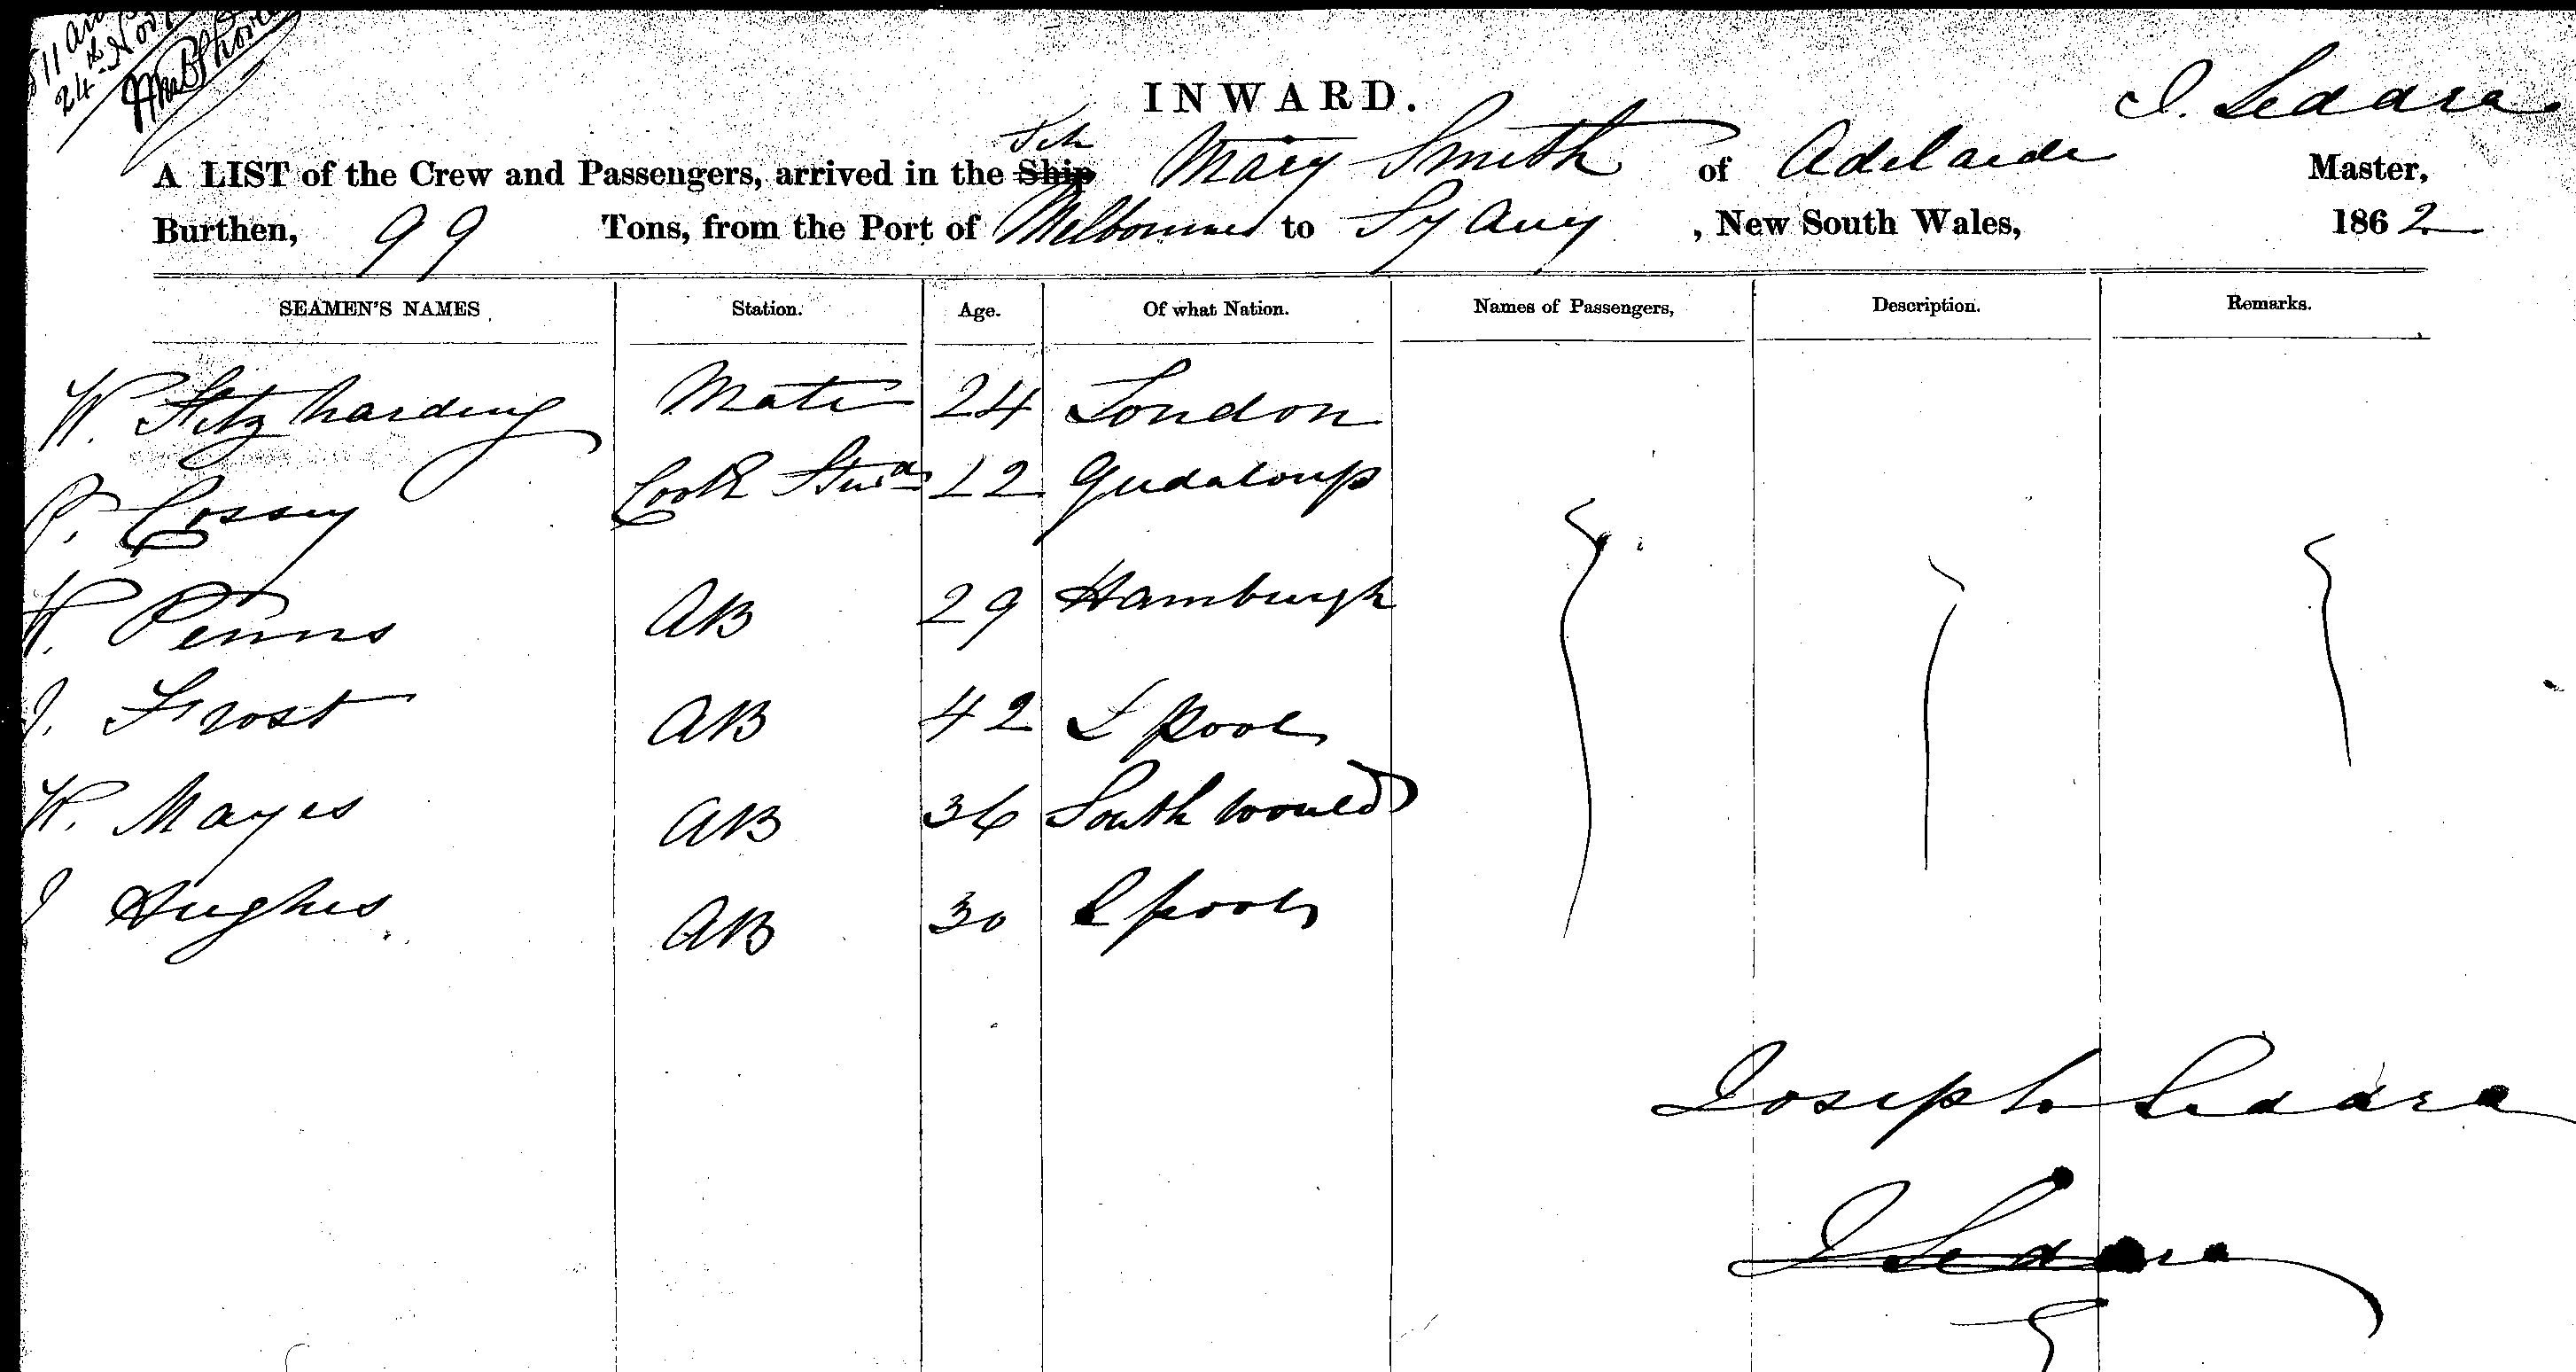 11 am
24th Novr
INWARD.
J. Seddra
A LIST of the Crew and Passengers, arrived in the Ship Sch Mary Smith of Adelaide Master,
Burthen, 99 Tons, from the Port of Melbourne to Sydney, New South Wales, 1862
SEAMEN'S NAMES Station. Age. Of what Nation. Names of Passengers, Description. Remarks.
W. Fitzharding Mate 24 London
P. Cossey Cook & Stwd 22 Gudaloup
W. Penns AB 29 Hamburgh
J. Frost AB 42 L pool
W. Mayes AB 36 South would
J Hughes AB 30 L pool
Joseph Seddra
J Seddra